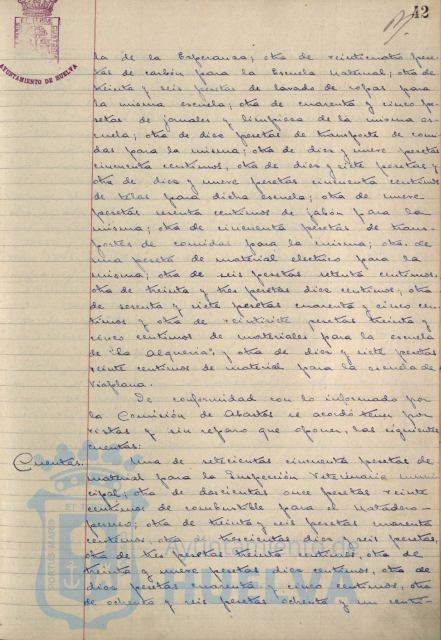 42
AYUNTAMIENTO DE HUELVA
la de la Esperanza; otra de veinticuatro pese-
tas de carbón para la Escuela Maternal; otra de
treinta y seis pesetas de lavado de ropas para
la misma escuela; otra de cuarenta y cinco pe-
setas de jornales y limpieza de la misma es-
cuela; otra de diez pesetas de transporte de comi-
das para la misma; otra de diez y nueve pesetas
cincuenta centimos, otra de diez y siete pesetas y
otra de diez y nueve pesetas cincuenta centimos
de telas para dicha escuela; otra de nueve
pesetas sesenta centimos de jabón para la
misma; otra de cincuenta pesetas de trans-
portes de comidas para la misma; otra de
una peseta de material electrico para la
misma; otra de seis pesetas setenta centimos,
otra de treinta y tres pesetas diez centimos, otra
de sesenta y siete pesetas cuarenta y cinco cen-
timos y otra de veintisiete pesetas treinta y
cinco centimos de materiales para la escuela
de "la Alqueria" y otra de diez y siete pesetas
veinte centimos de material para la escuela de
Viaplana.
De conformidad con lo informado por
la Comisión de Abastos se acordó tener por
vistas y sin reparo que oponer, las siguientes
cuentas:
Cuentas. Una de setecientas cincuenta pesetas de
material para la Inspección Veterinaria muni-
cipal; otra de doscientas once pesetas veinte
centimos de combustible para el Matadero-
perneo; otra de treinta y seis pesetas cuarenta
centimos, otra de trescientas diez y seis pesetas,
otra de tres pesetas treinta centimos, otra de
treinta y nueve pesetas diez centimos, otra de
diez pesetas cuarenta y cinco centimos, otra
de ochenta y seis pesetas ochenta y un centi-
HUELVA